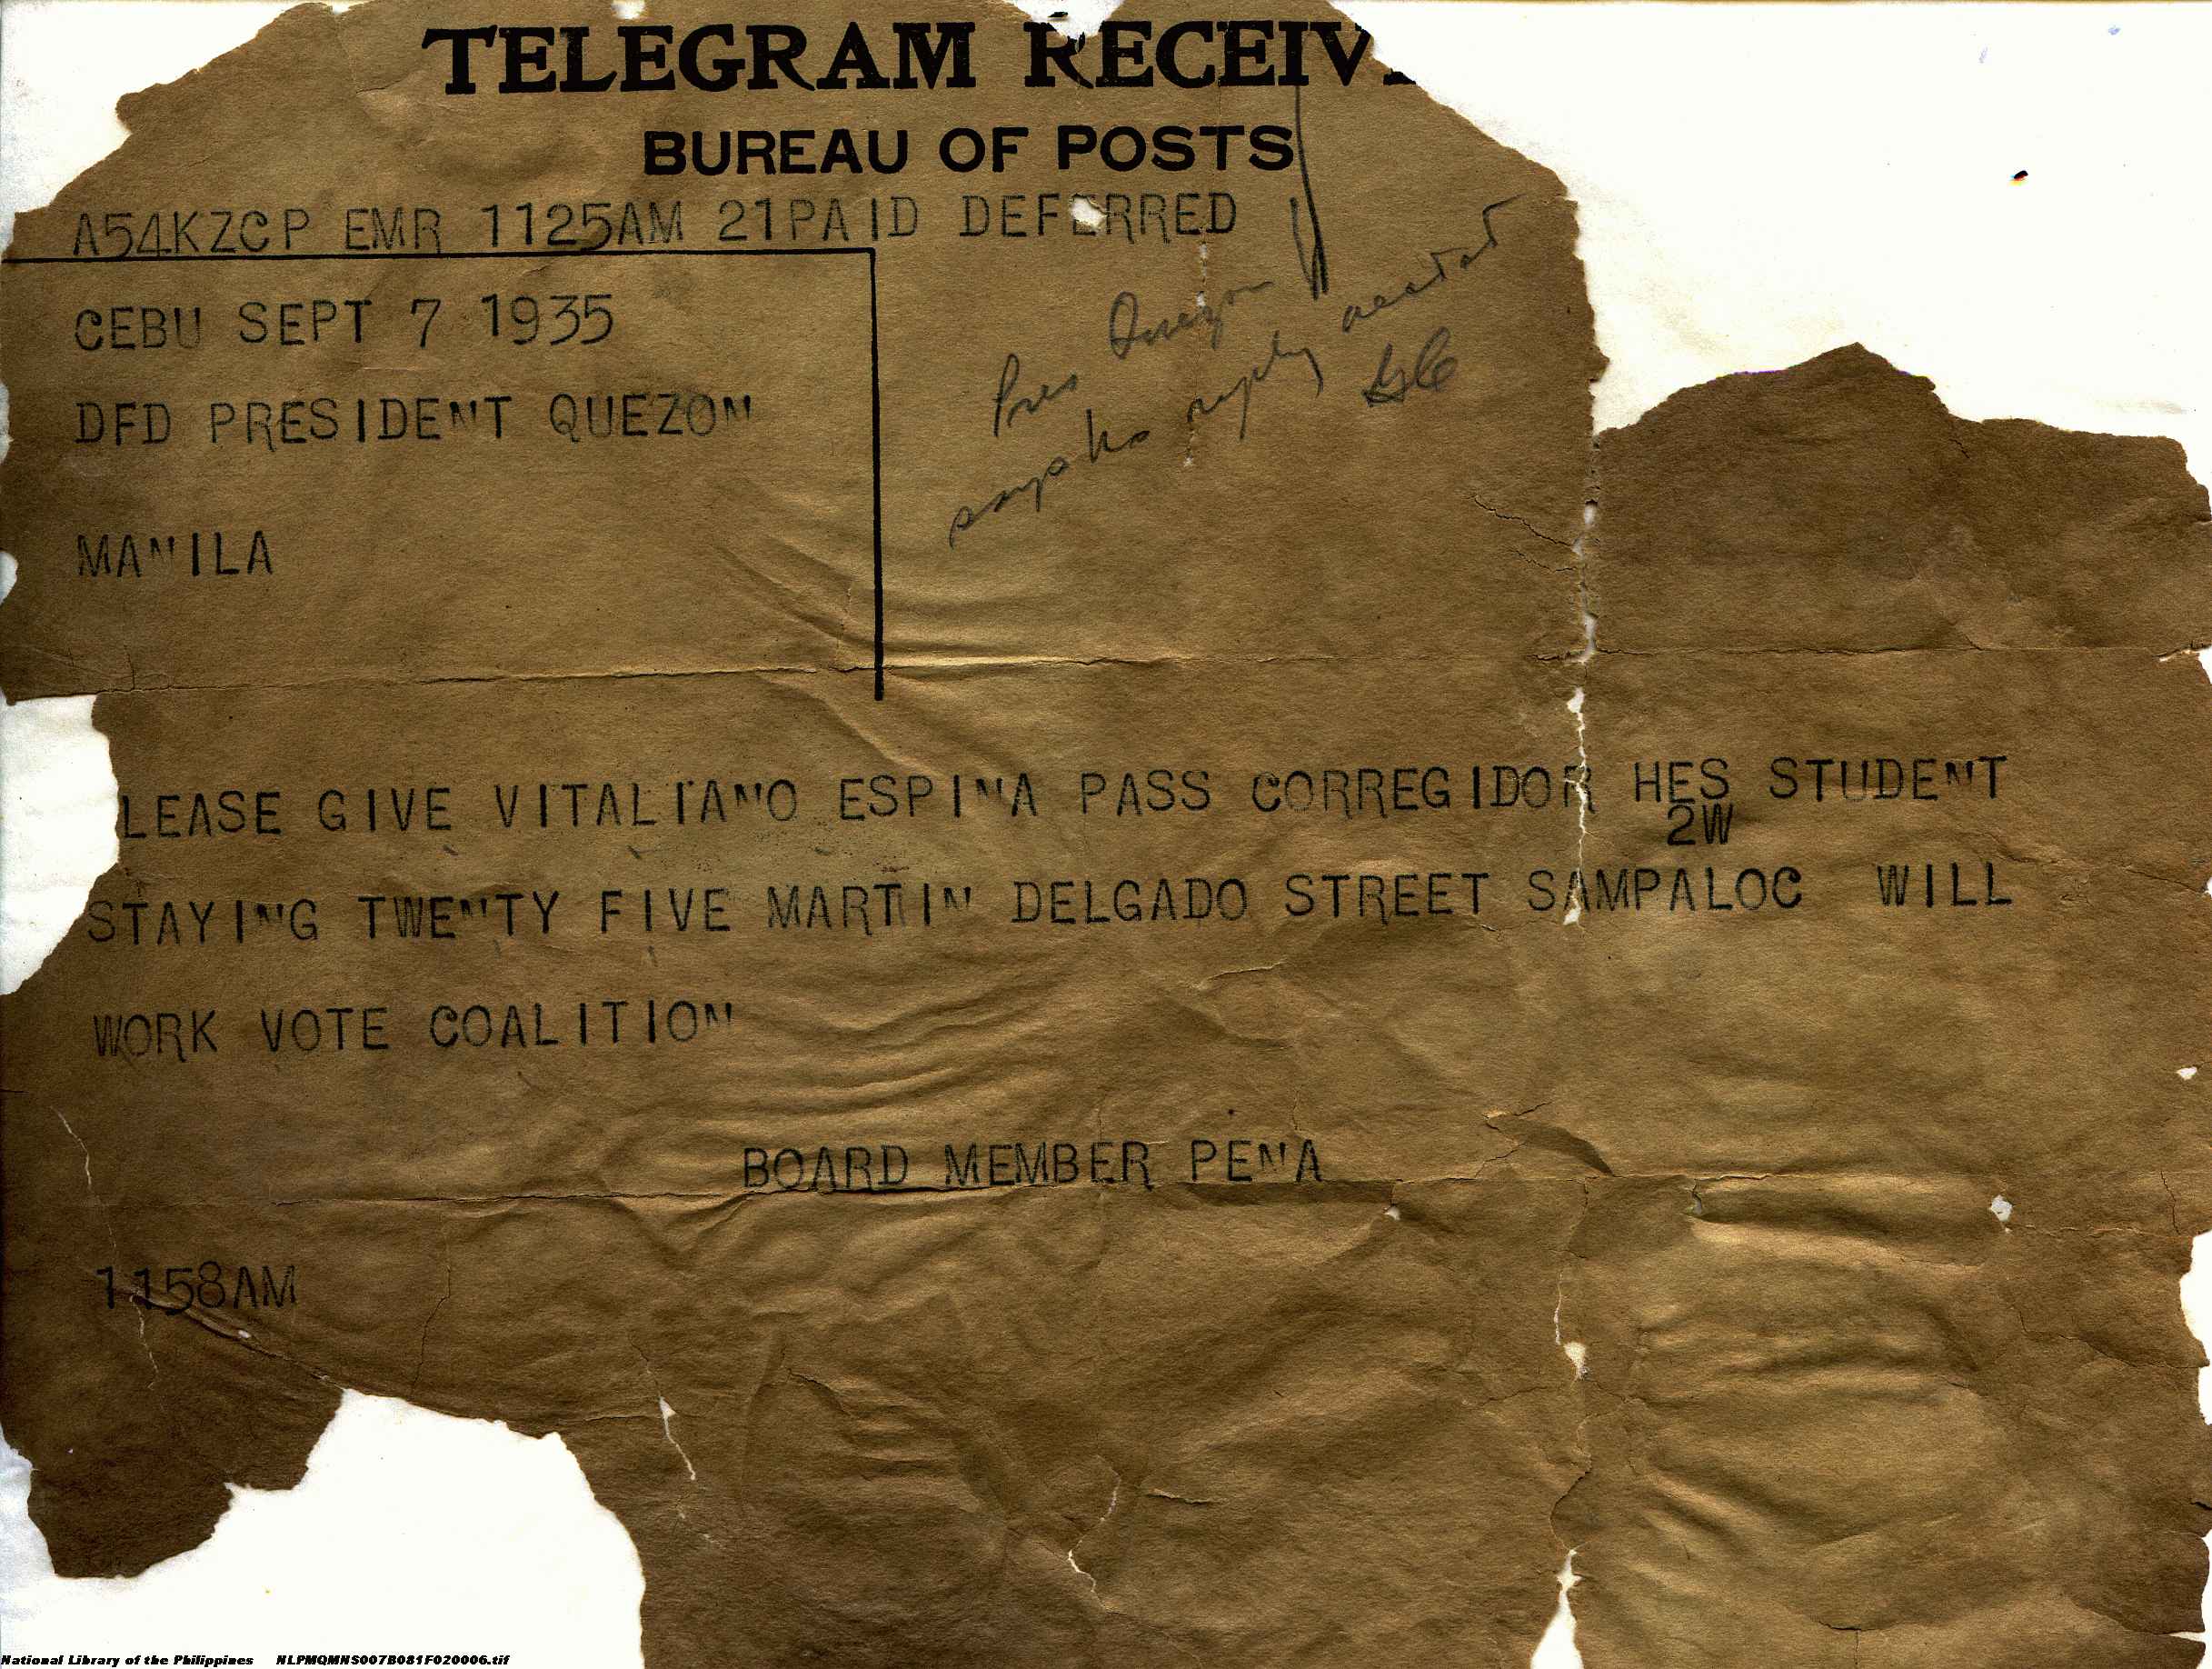 TELEGRAM RECEIV
BUREAU OF POSTS
A54KZCP EMR 1125AM 21PAID DEFERRED
CEBU SEPT 7 1935
DFD PRESIDENT QUEZON
MANILA
Pres Quezon
says no reply needed
LEASE GIVE VITALIANO ESPINA PASS CORREGIDOR HES STUDENT
2W
STAYING TWENTY FIVE MARTIN DELGADO STREET SAMPALOC WILL
WORK VOTE COALITION
BOARD MEMBER PENA
1158AM
National Library of the Philippines NLPMQMNS007B081F020006.tif